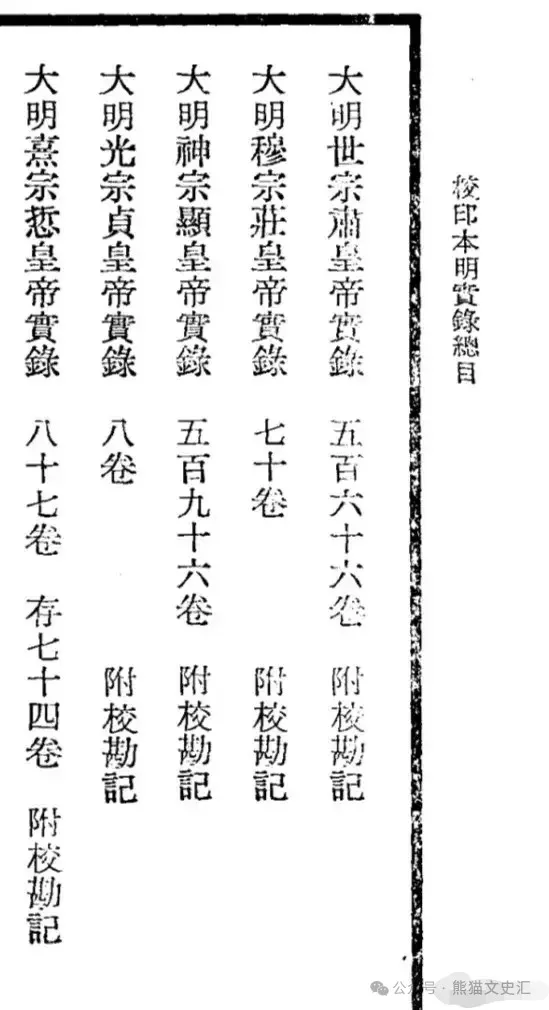 校印本明實錄總目
大明世宗肅皇帝實錄 五百六十六卷 附校勘記
大明穆宗莊皇帝實錄 七十卷 附校勘記
大明神宗顯皇帝實錄 五百九十六卷 附校勘記
大明光宗貞皇帝實錄 八卷 附校勘記
大明熹宗悊皇帝實錄 八十七卷 存七十四卷 附校勘記
公众号·熊猫文史汇